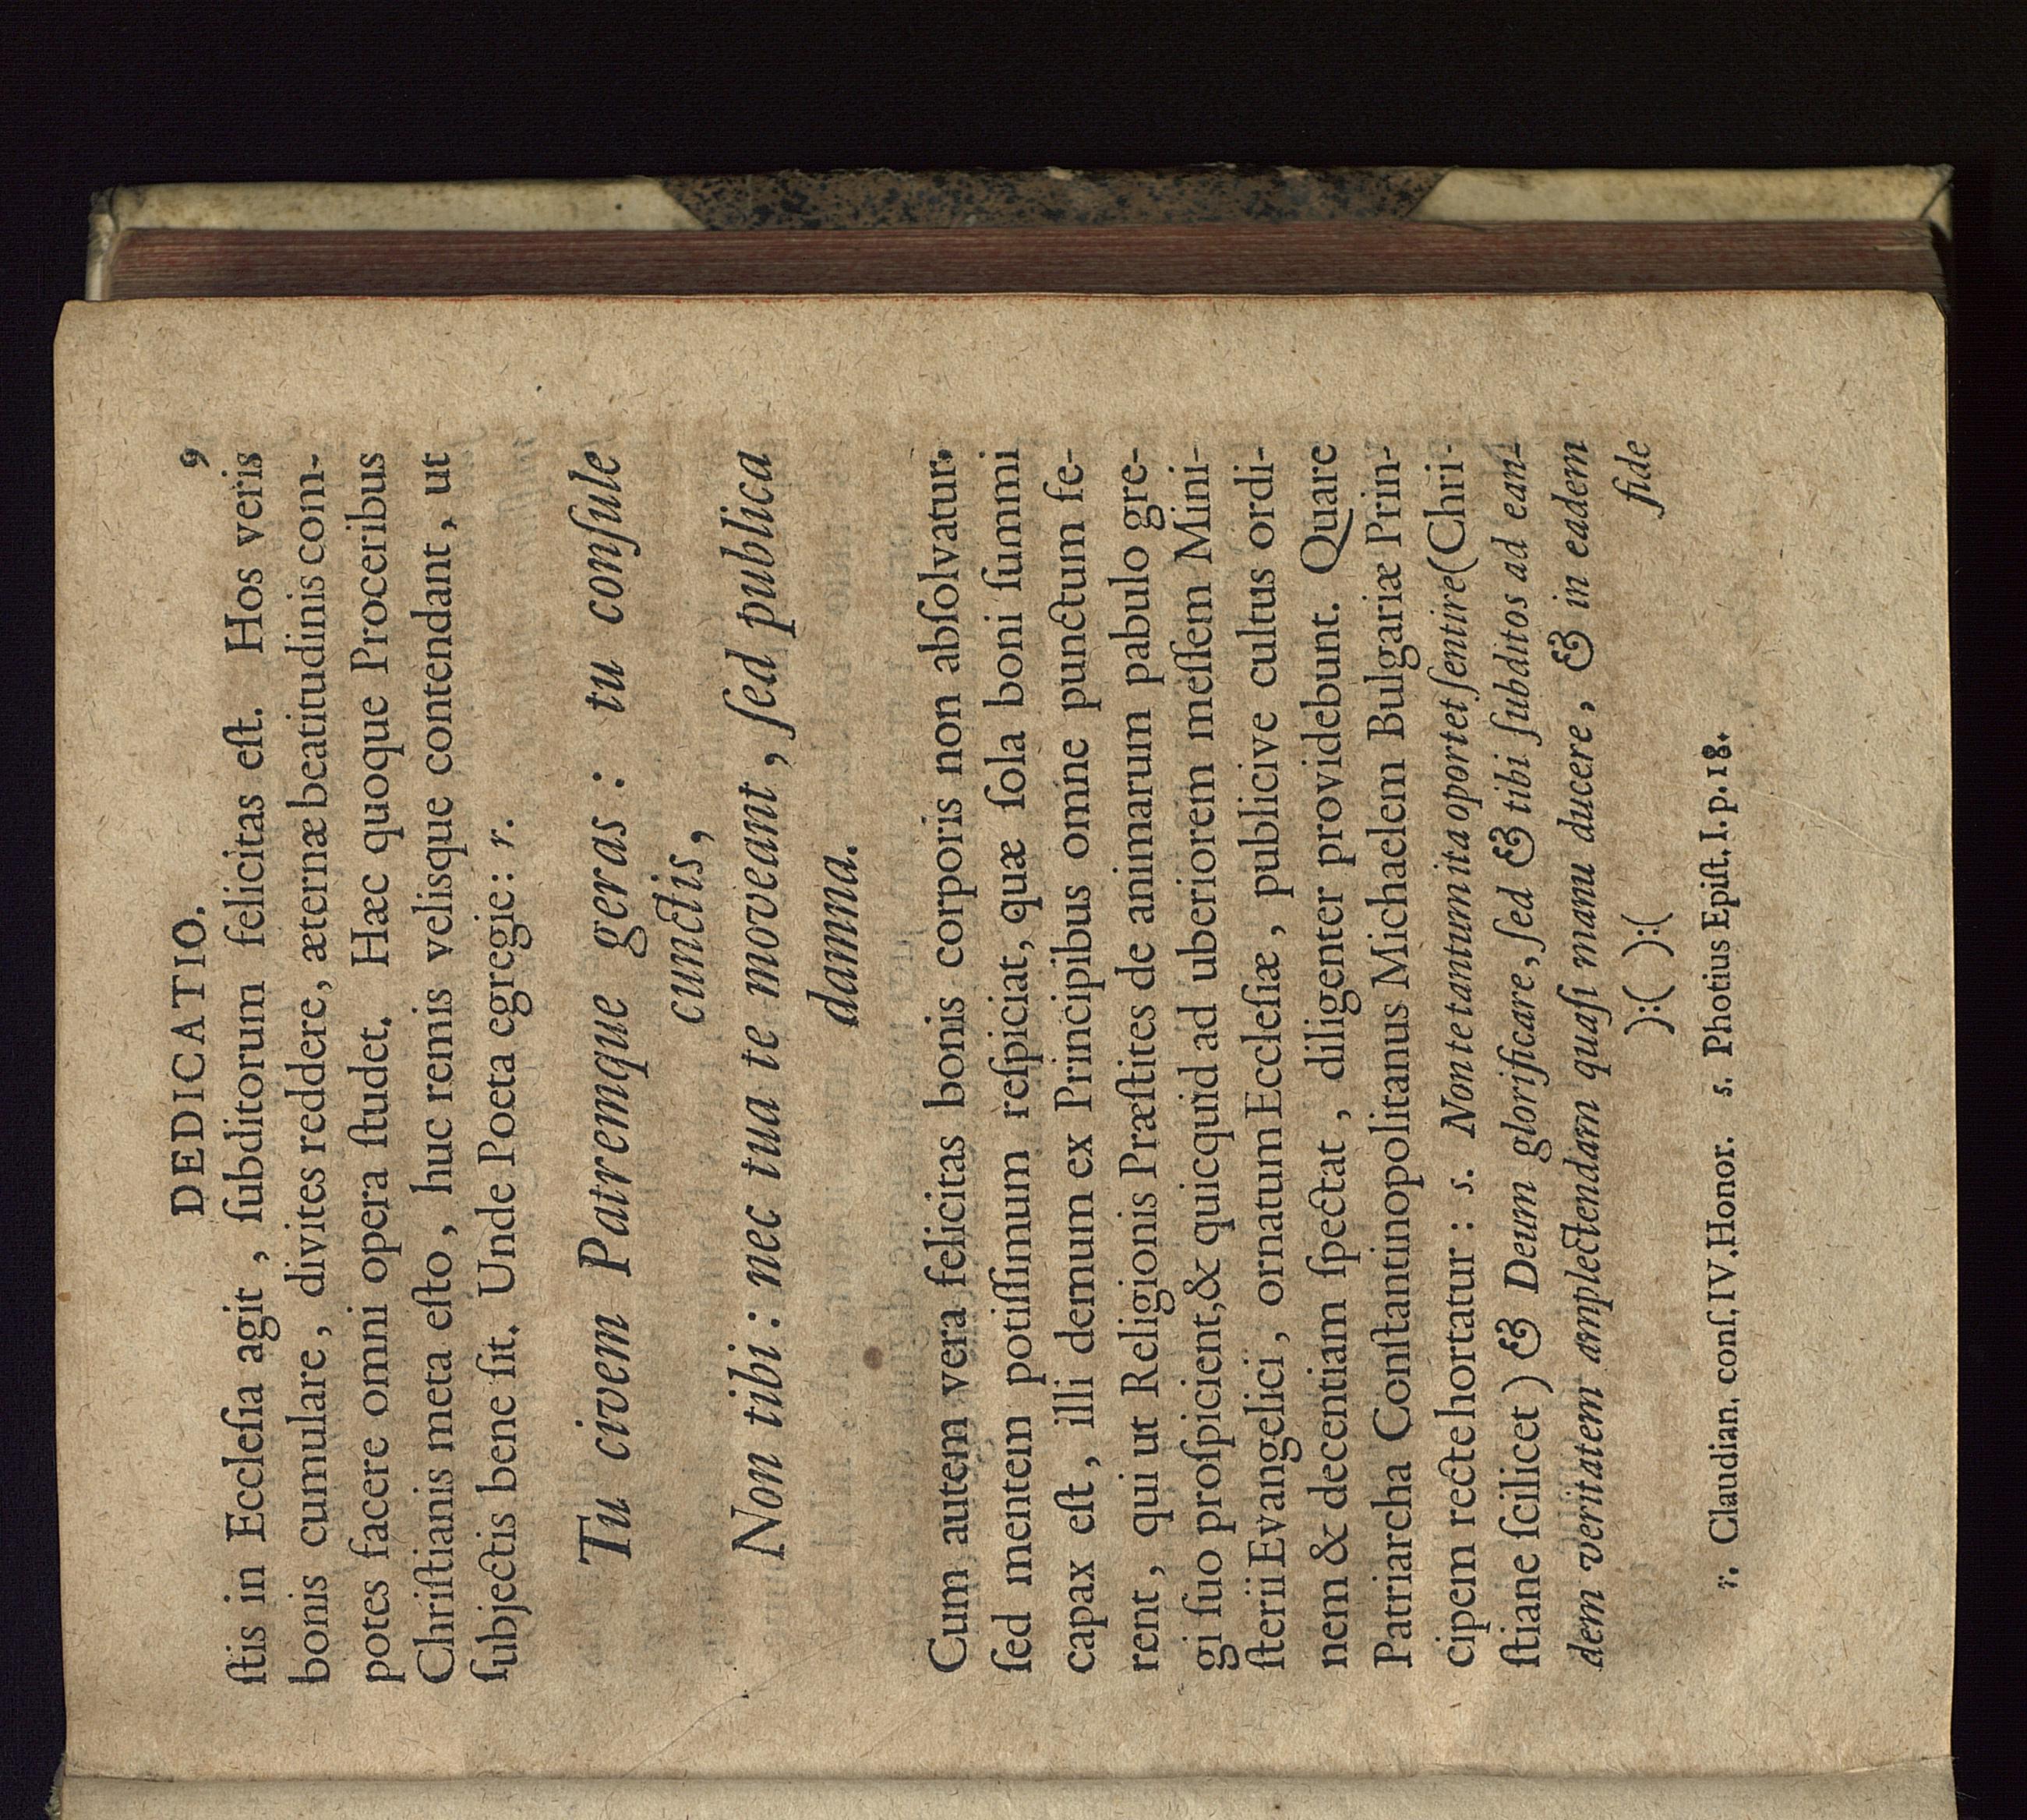 DEDICATIO. 9
ſtis in Eccleſia agit, ſubditorum felicitas eſt. Hos veris
bonis cumulare, divites reddere, æternæ beatitudinis com-
potes facere omni opera ſtudet. Hæc quoque Proceribus
Chriſtianis meta eſto, huc remis velisque contendant, ut
ſubjectis bene ſit. Unde Poeta egregie: r.
Tu civem Patremque geras: tu conſule
cunctis,
Non tibi: nec tua te moveant, ſed publica
damna.
Cum autem vera felicitas bonis corporis non abſolvatur,
ſed mentem potiſſimum reſpiciat, quæ ſola boni ſummi
capax eſt, illi demum ex Principibus omne punctum fe-
rent, qui ut Religionis Præſtites de animarum pabulo gre-
gi ſuo proſpicient, & quicquid ad uberiorem meſſem Mini-
ſterii Evangelici, ornatum Eccleſiæ, publicive cultus ordi-
nem & decentiam ſpectat, diligenter providebunt. Quare
Patriarcha Conſtantinopolitanus Michaelem Bulgariæ Prin-
cipem recte hortatur: s. Non te tantum ita oportet ſentire (Chri-
ſtiane ſcilicet) & Deum glorificare, ſed & tibi ſubditos ad ean-
dem veritatem amplectendam quaſi manu ducere, & in eadem
):( ):( fide
r. Claudian. conſ. IV. Honor. s. Photius Epiſt. I. p. 18.